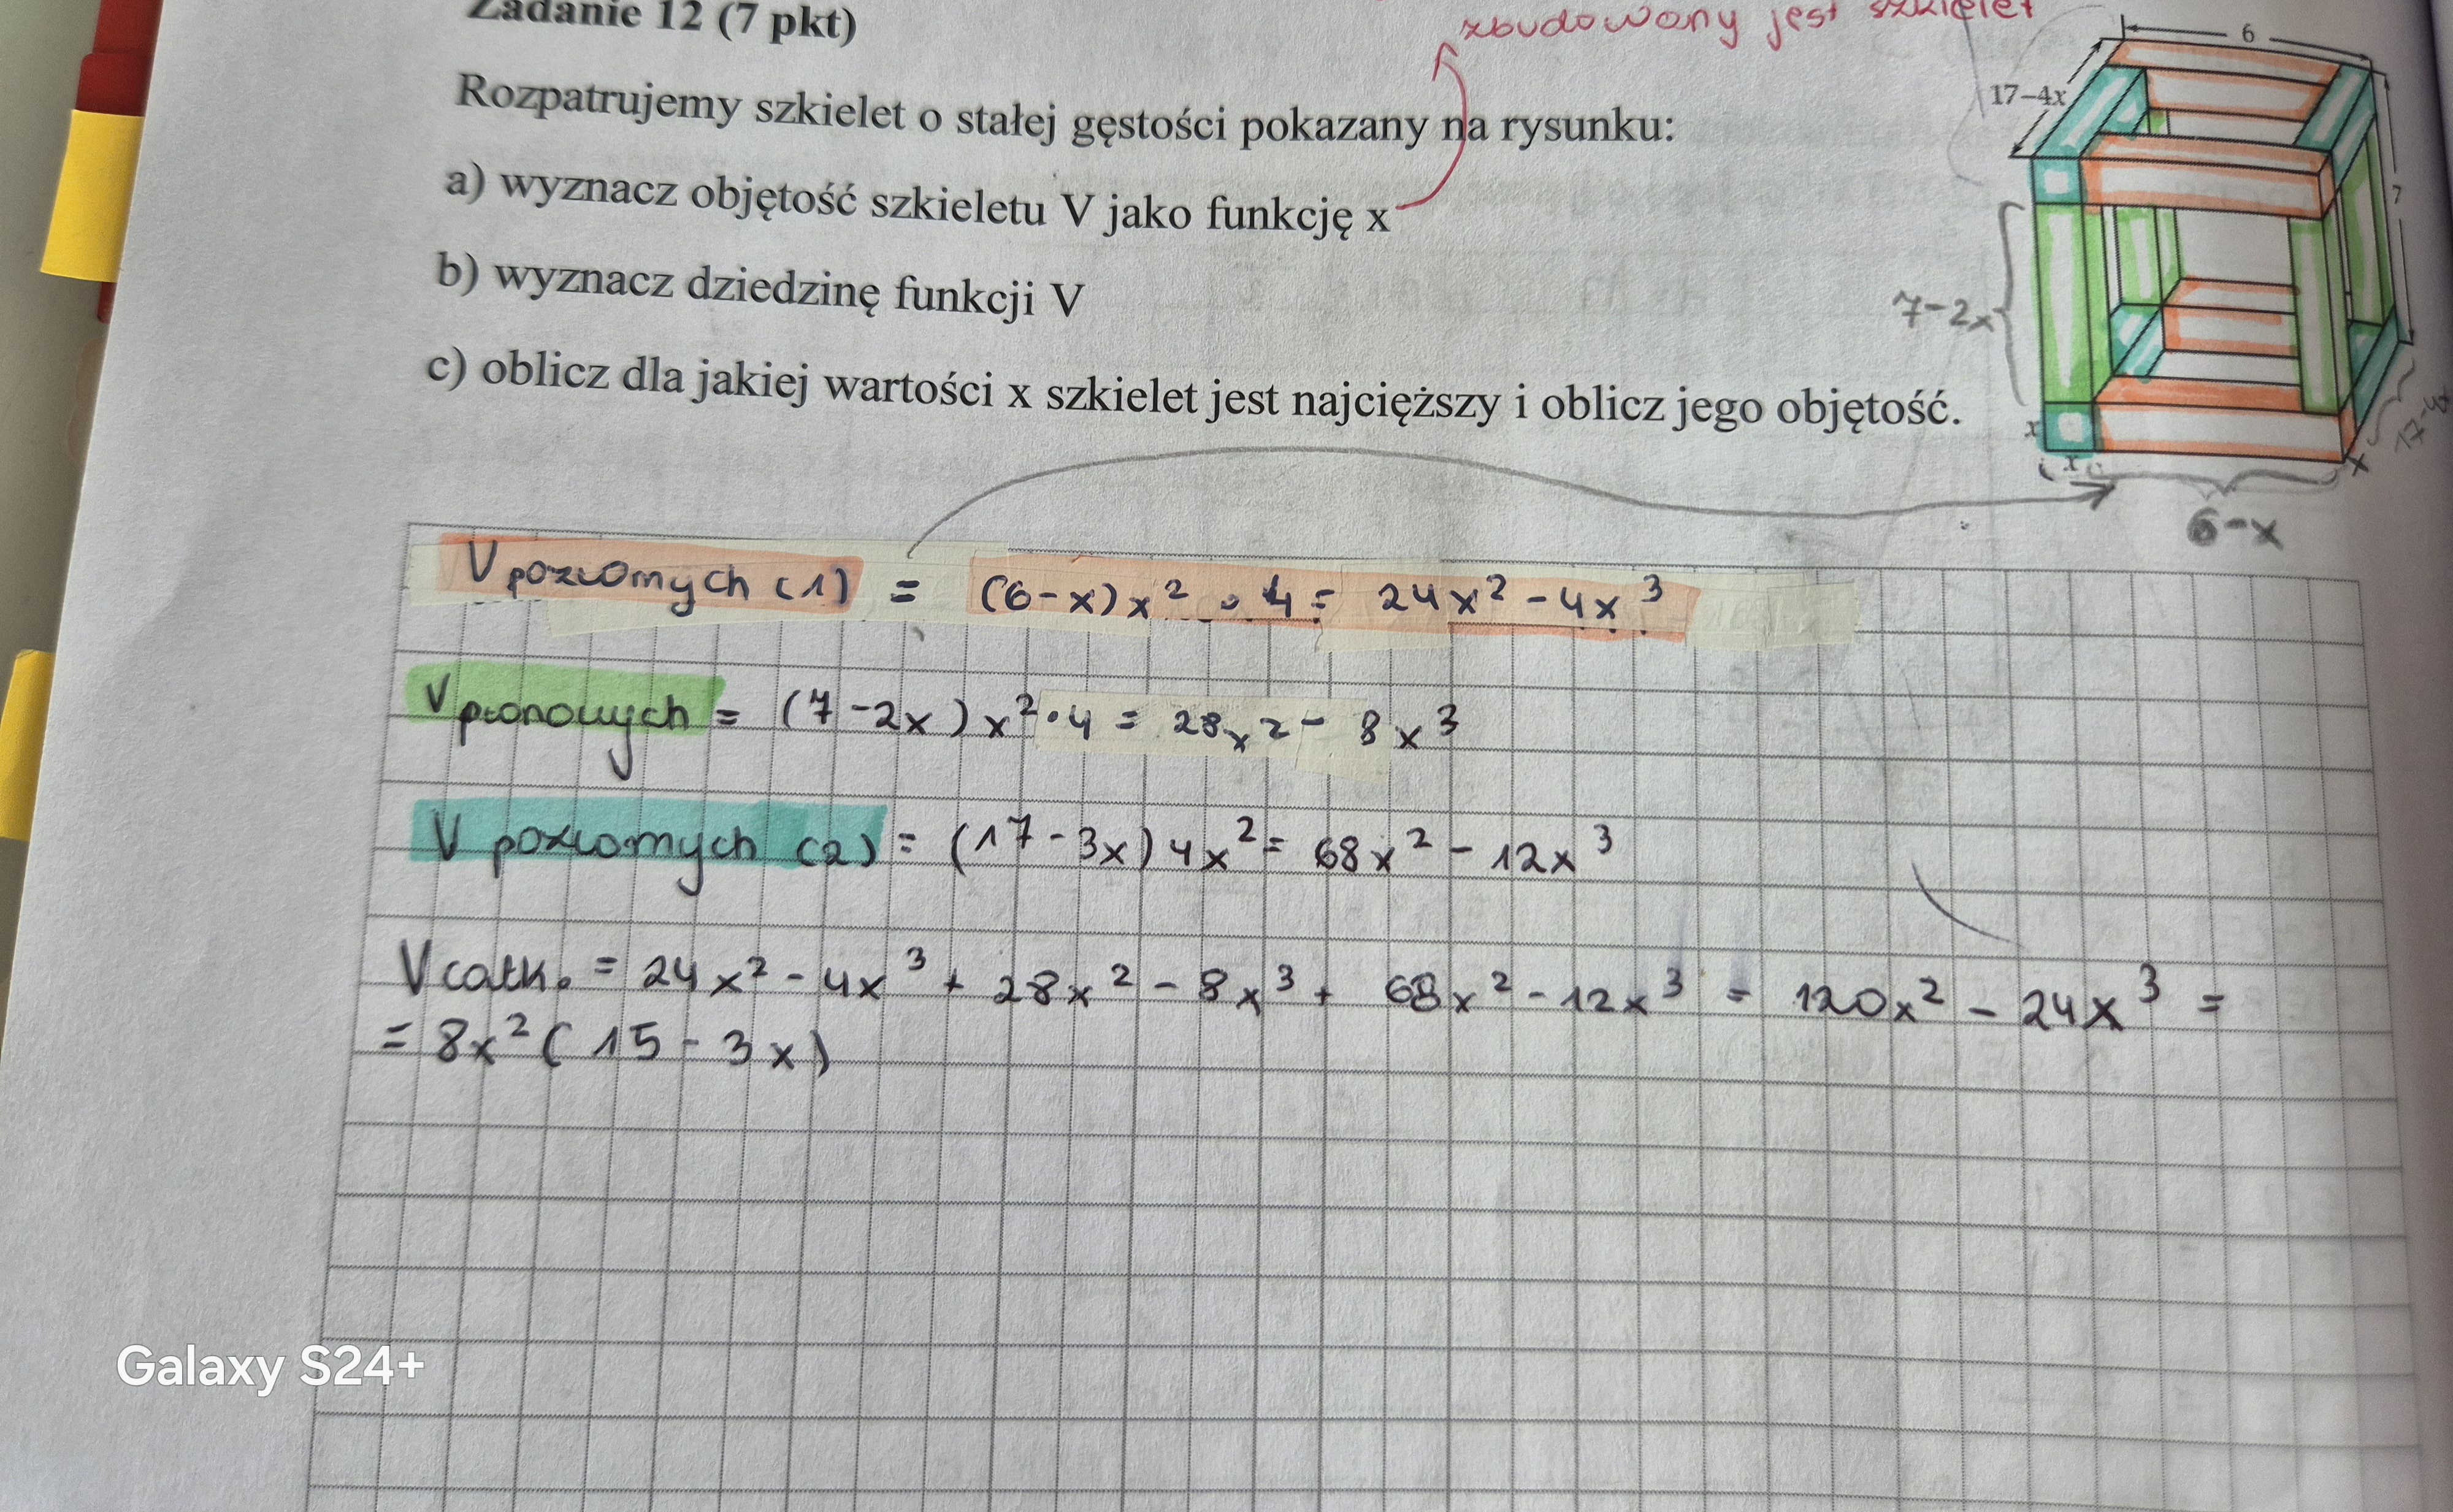 Zadanie 12 (7 pkt)
zbudowany jest szkielet
Rozpatrujemy szkielet o stałej gęstości pokazany na rysunku:
a) wyznacz objętość szkieletu V jako funkcję x
b) wyznacz dziedzinę funkcji V
c) oblicz dla jakiej wartości x szkielet jest najcięższy i oblicz jego objętość.
6
17–4x
7
7-2x
x
x
x
17-4x
6-x
V poziomych (1) = (6-x)x² · 4 = 24x² - 4x³
V pionowych = (7-2x)x² · 4 = 28x² - 8x³
V poziomych (2) = (17-3x)4x² = 68x² - 12x³
V całk. = 24x² - 4x³ + 28x² - 8x³ + 68x² - 12x³ = 120x² - 24x³ =
= 8x²(15-3x)
Galaxy S24+